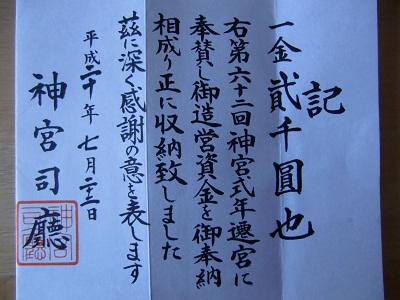 記
一金貳千圓也
右第六十二回神宮式年遷宮に
奉賛し御造営資金を御奉納
相成り正に収納致しました
茲に深く感謝の意を表します
平成二十年七月二十二日
神宮司廳